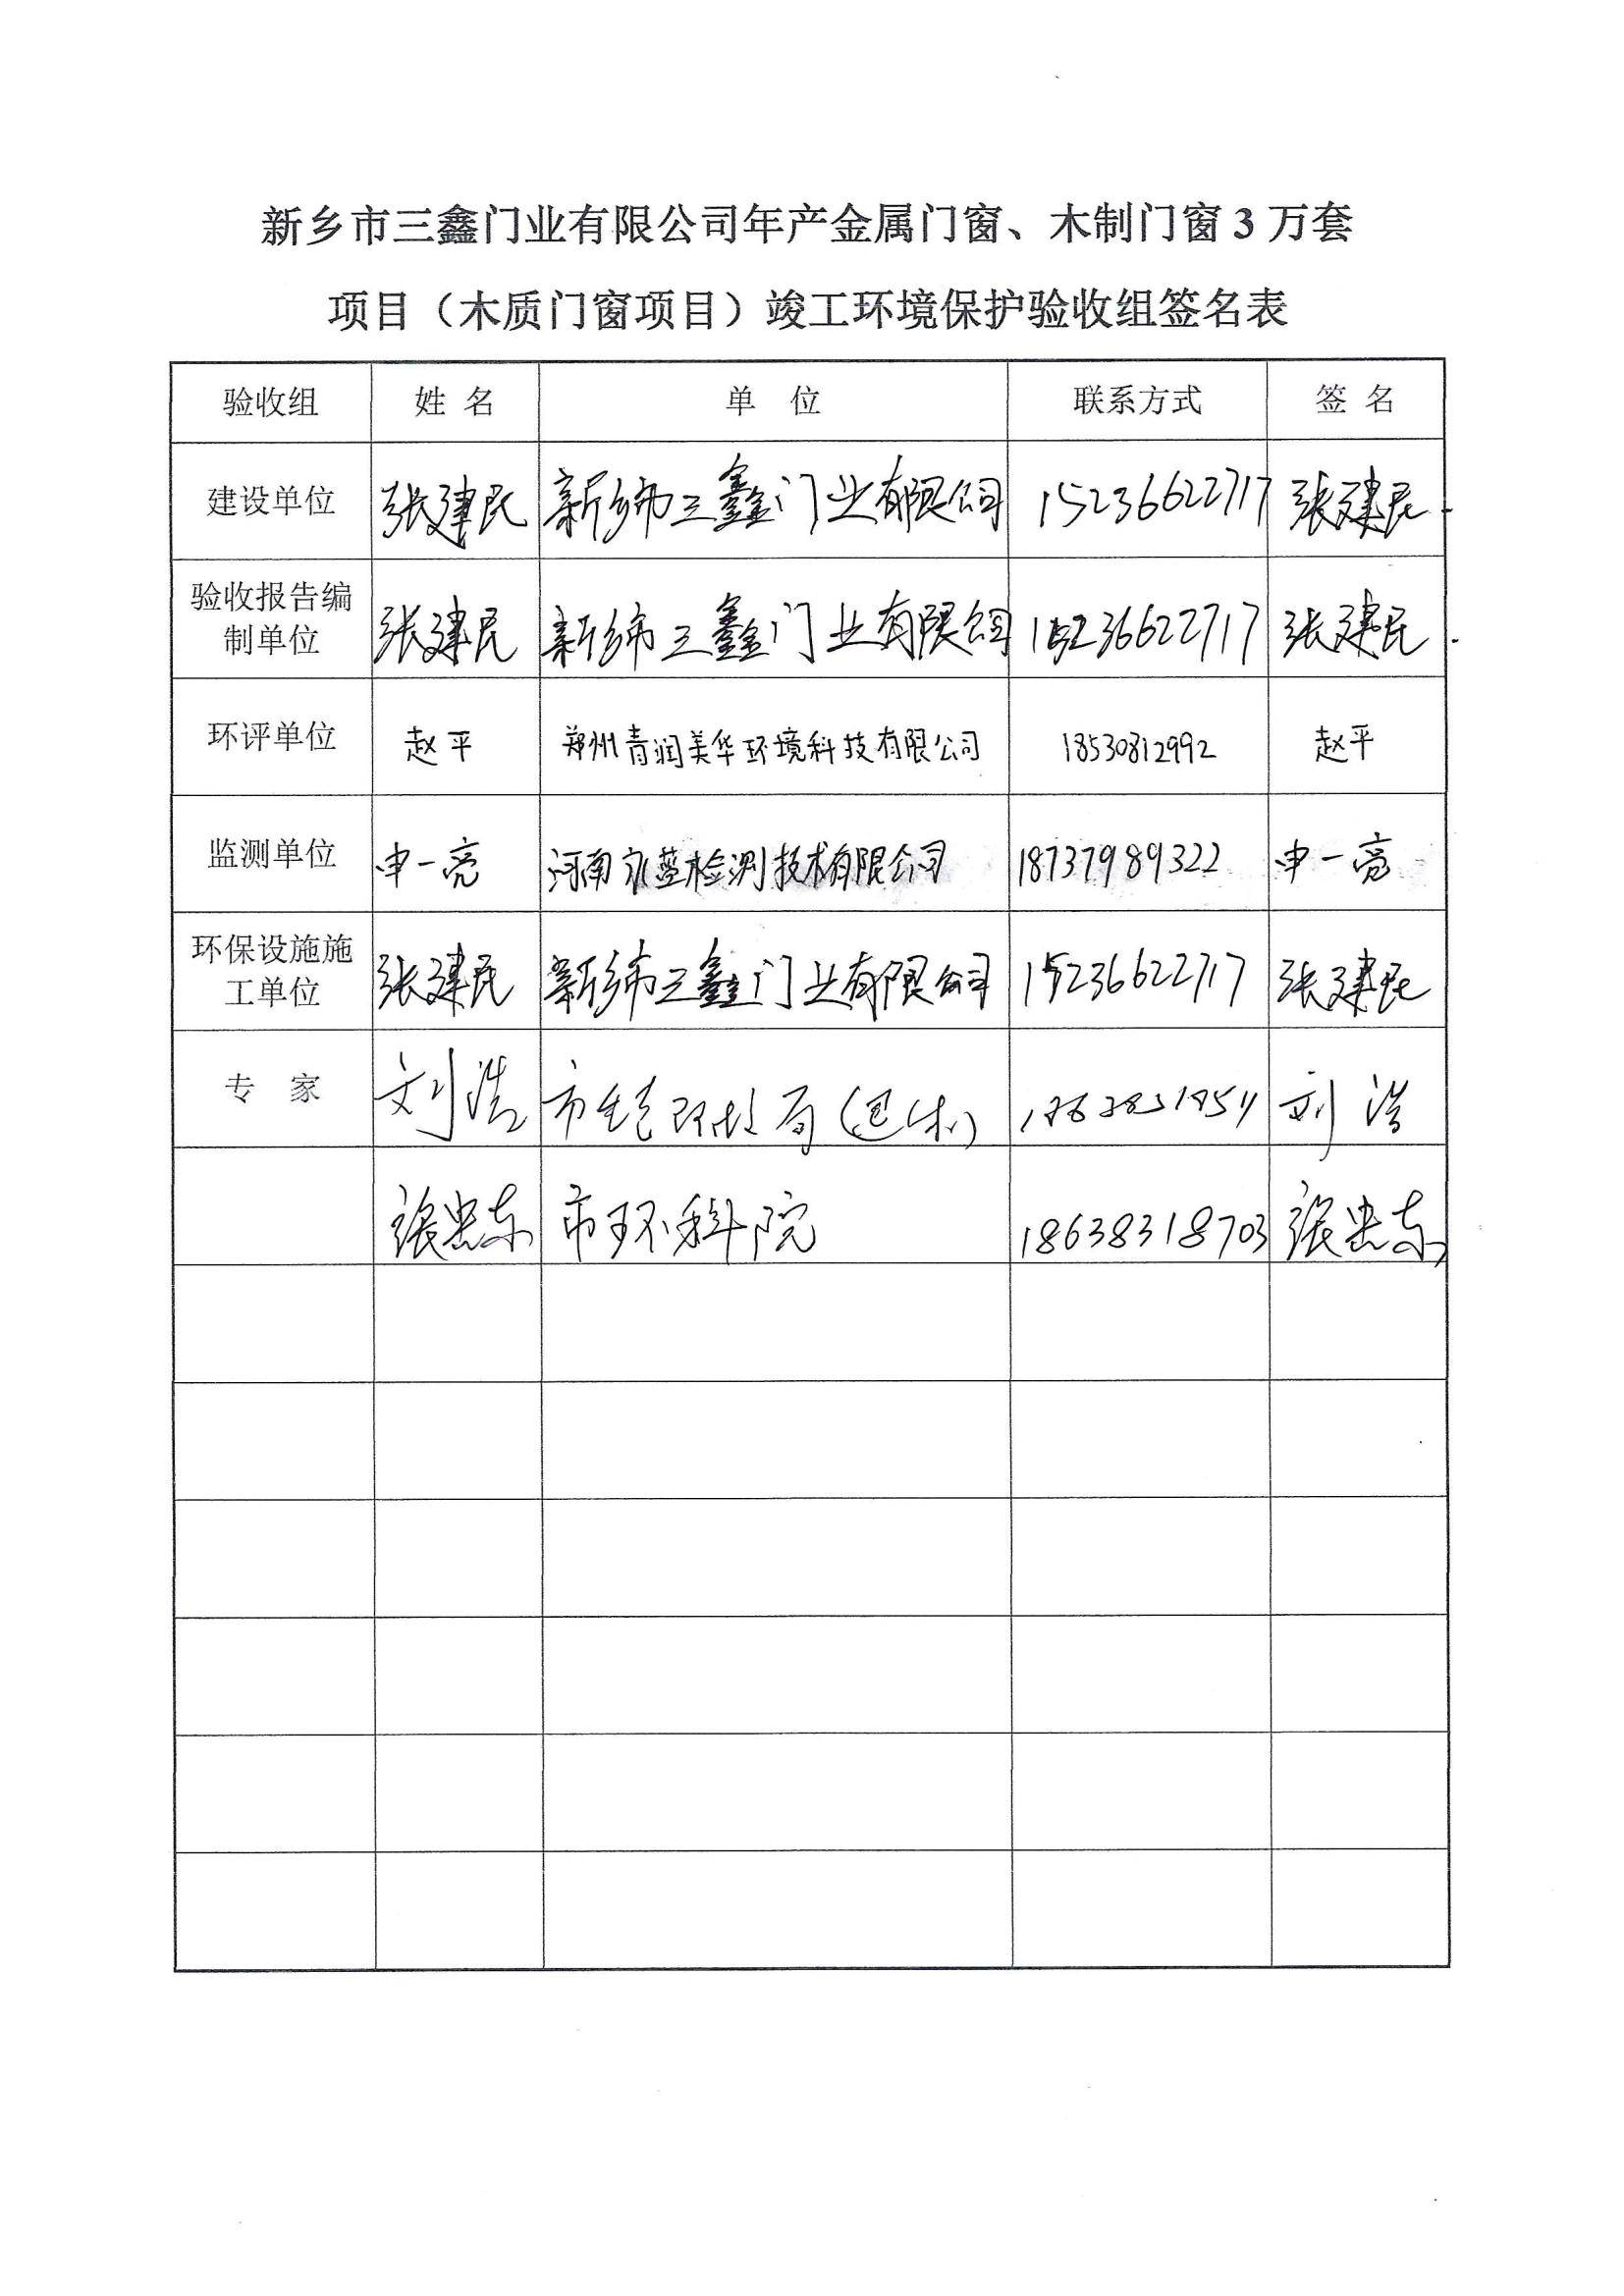 新乡市三鑫门业有限公司年产金属门窗、木制门窗 3 万套
项目（木质门窗项目）竣工环境保护验收组签名表
验收组 姓 名 单 位 联系方式 签 名
建设单位 张建民 新乡市三鑫门业有限公司 15236622717 张建民
验收报告编
制单位 张建民 新乡市三鑫门业有限公司 15236622717 张建民
环评单位 赵平 郑州青润美华环境科技有限公司 18530812992 赵平
监测单位 申一亮 河南永蓝检测技术有限公司 18737989322 申一亮
环保设施施
工单位 张建民 新乡市三鑫门业有限公司 15236622717 张建民
专 家 刘浩 刘浩
张忠东 市环科院 18638318703 张忠东